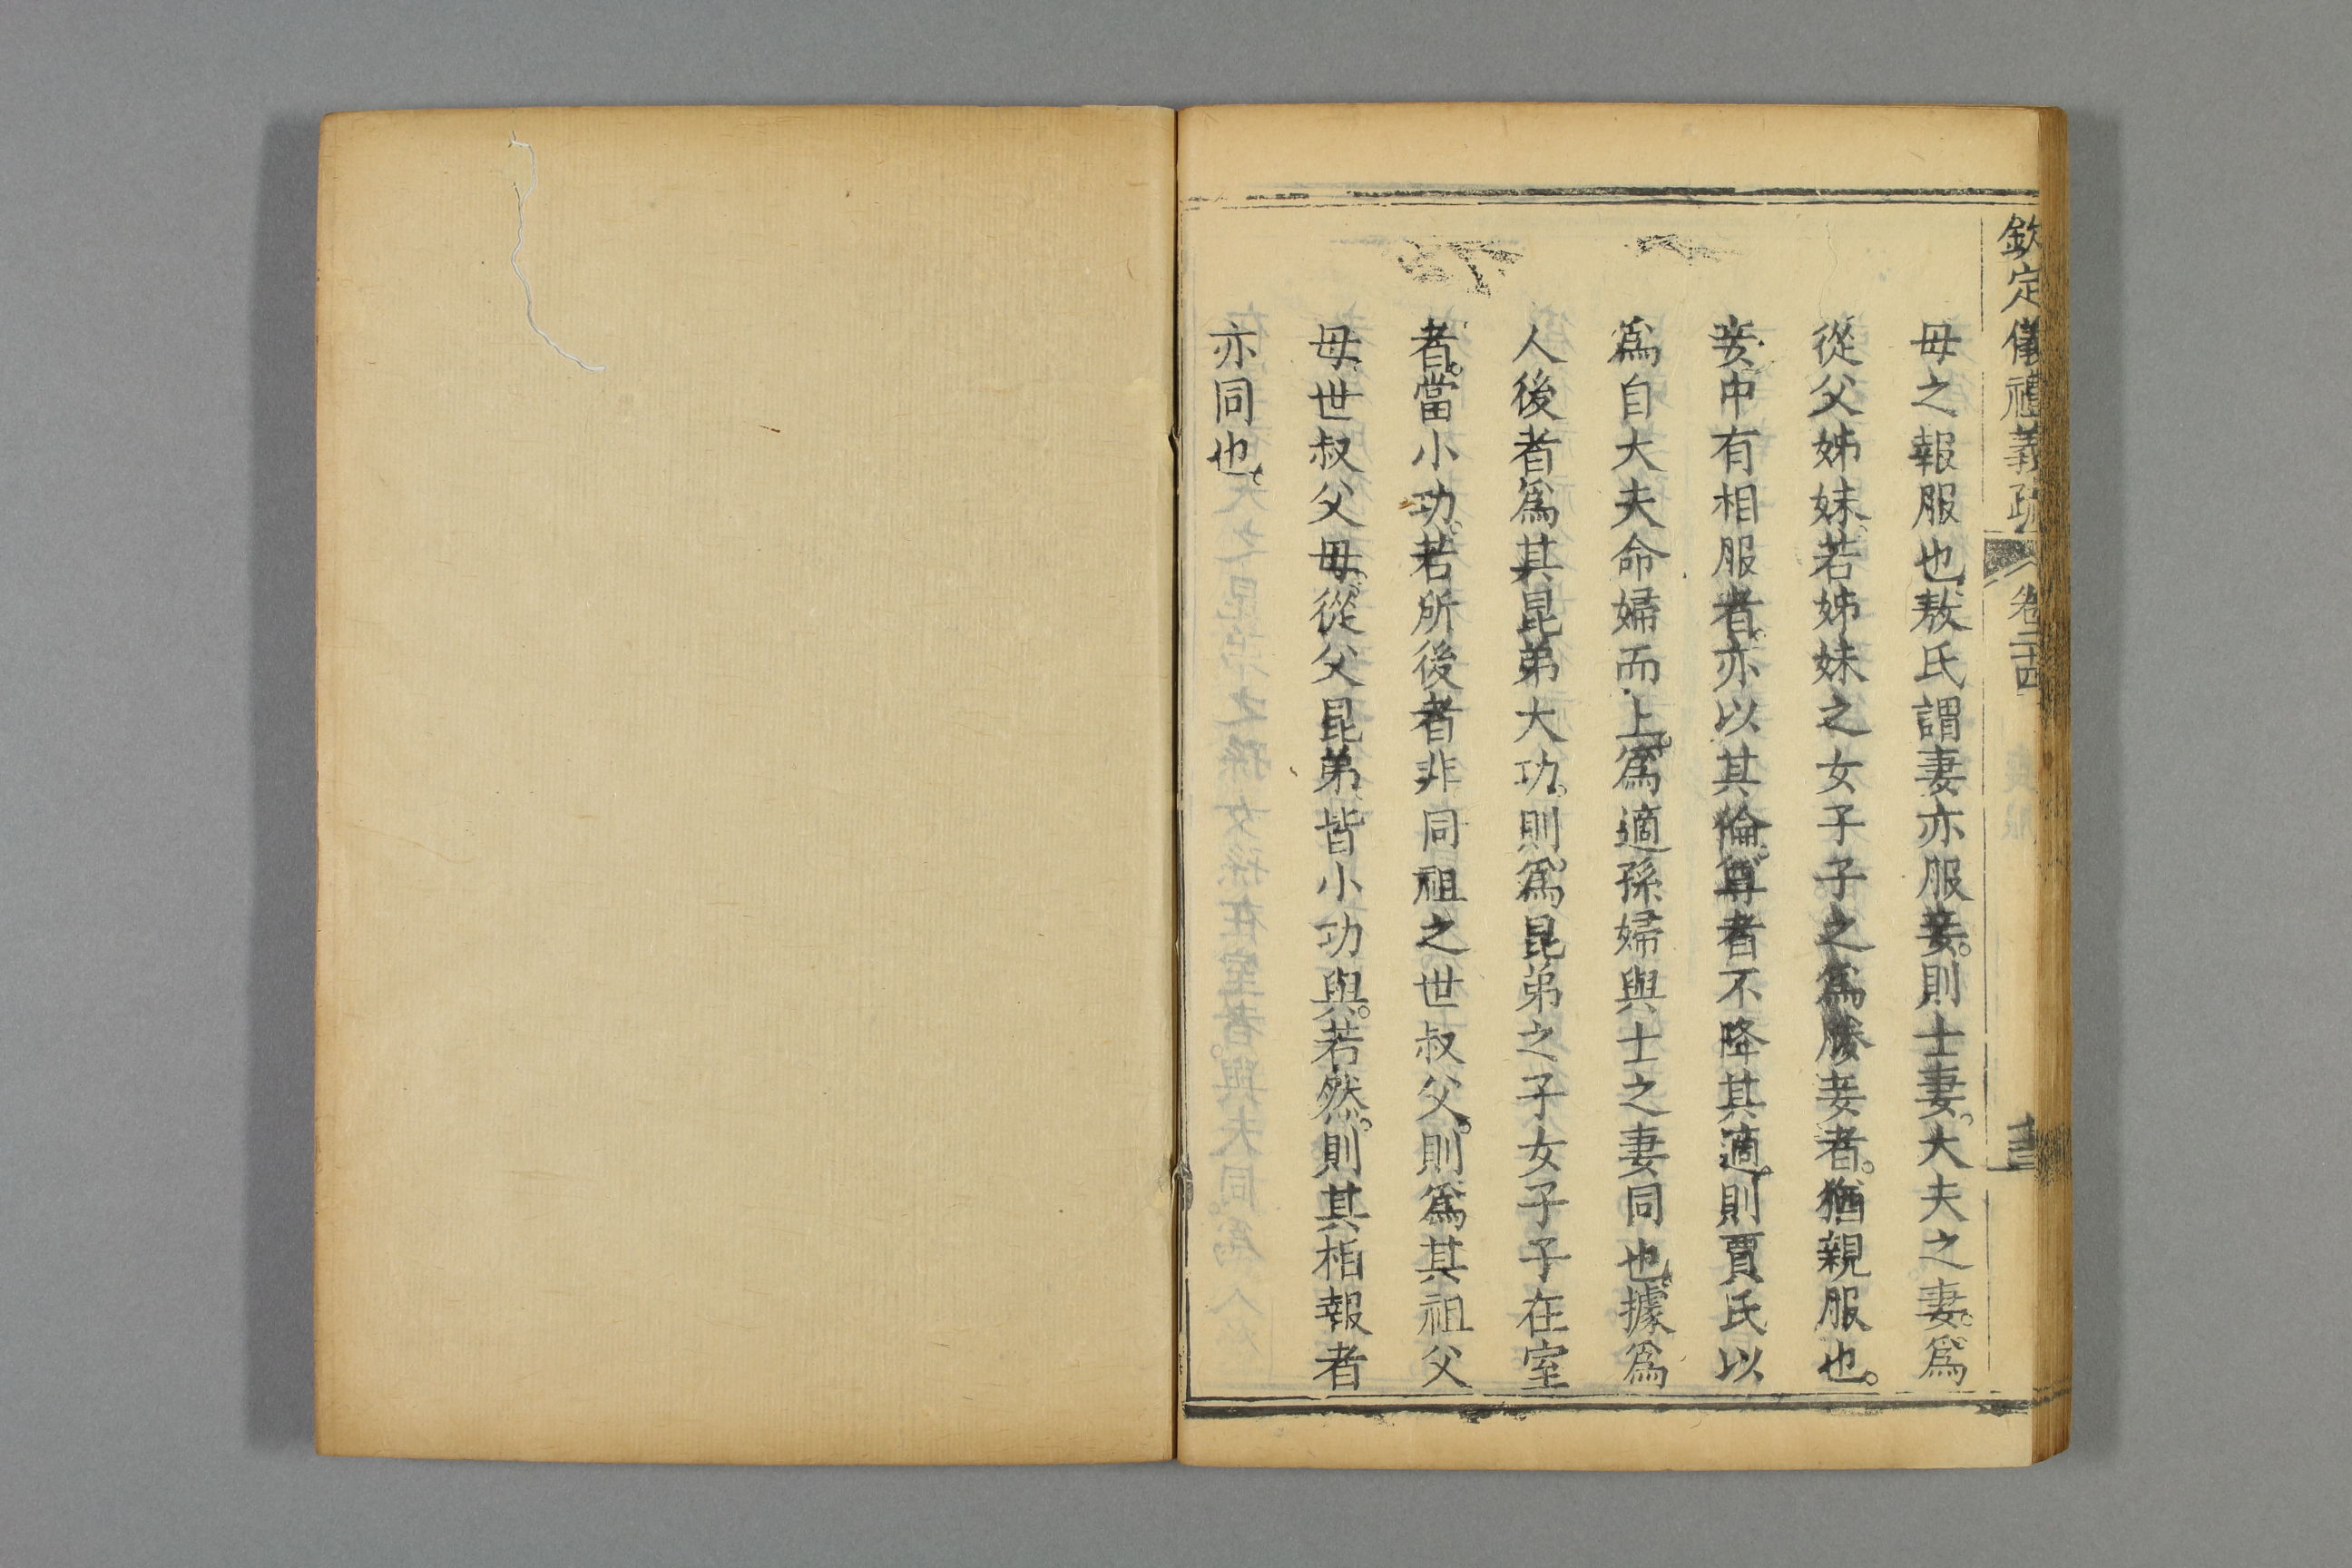 欽定儀禮義疏 卷二十四
母之報服也敖氏謂妻亦服妾。則士妻。大夫之妻。爲
從父姊妹。若姊妹之女子子之爲媵妾者。猶親服也。
妾中有相服者。亦以其倫。尊者不降其適。則賈氏以
爲自大夫命婦而上。爲適孫婦與士之妻同也。據爲
人後者爲其昆弟大功。則爲昆弟之子女子子在室
者。當小功。若所後者非同祖之世叔父。則爲其祖父
母世叔父母。從父昆弟。皆小功與。若然。則其相報者
亦同也。